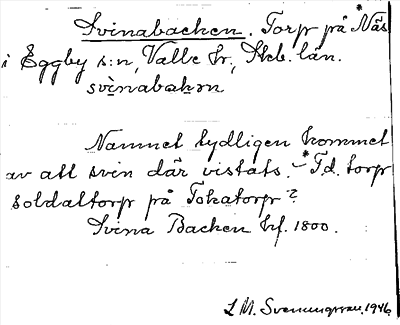 Svinabacken. Torp på *Näs
i Eggby s:n, Valle hr, Skb. län.
svìnabakɔn
Namnet tydligen kommet
av att svin där vistats. - *F.d. torp
soldattorp på Tokatorp?
Svina Backen hf. 1800.
L M. Svenungsson, 1946.